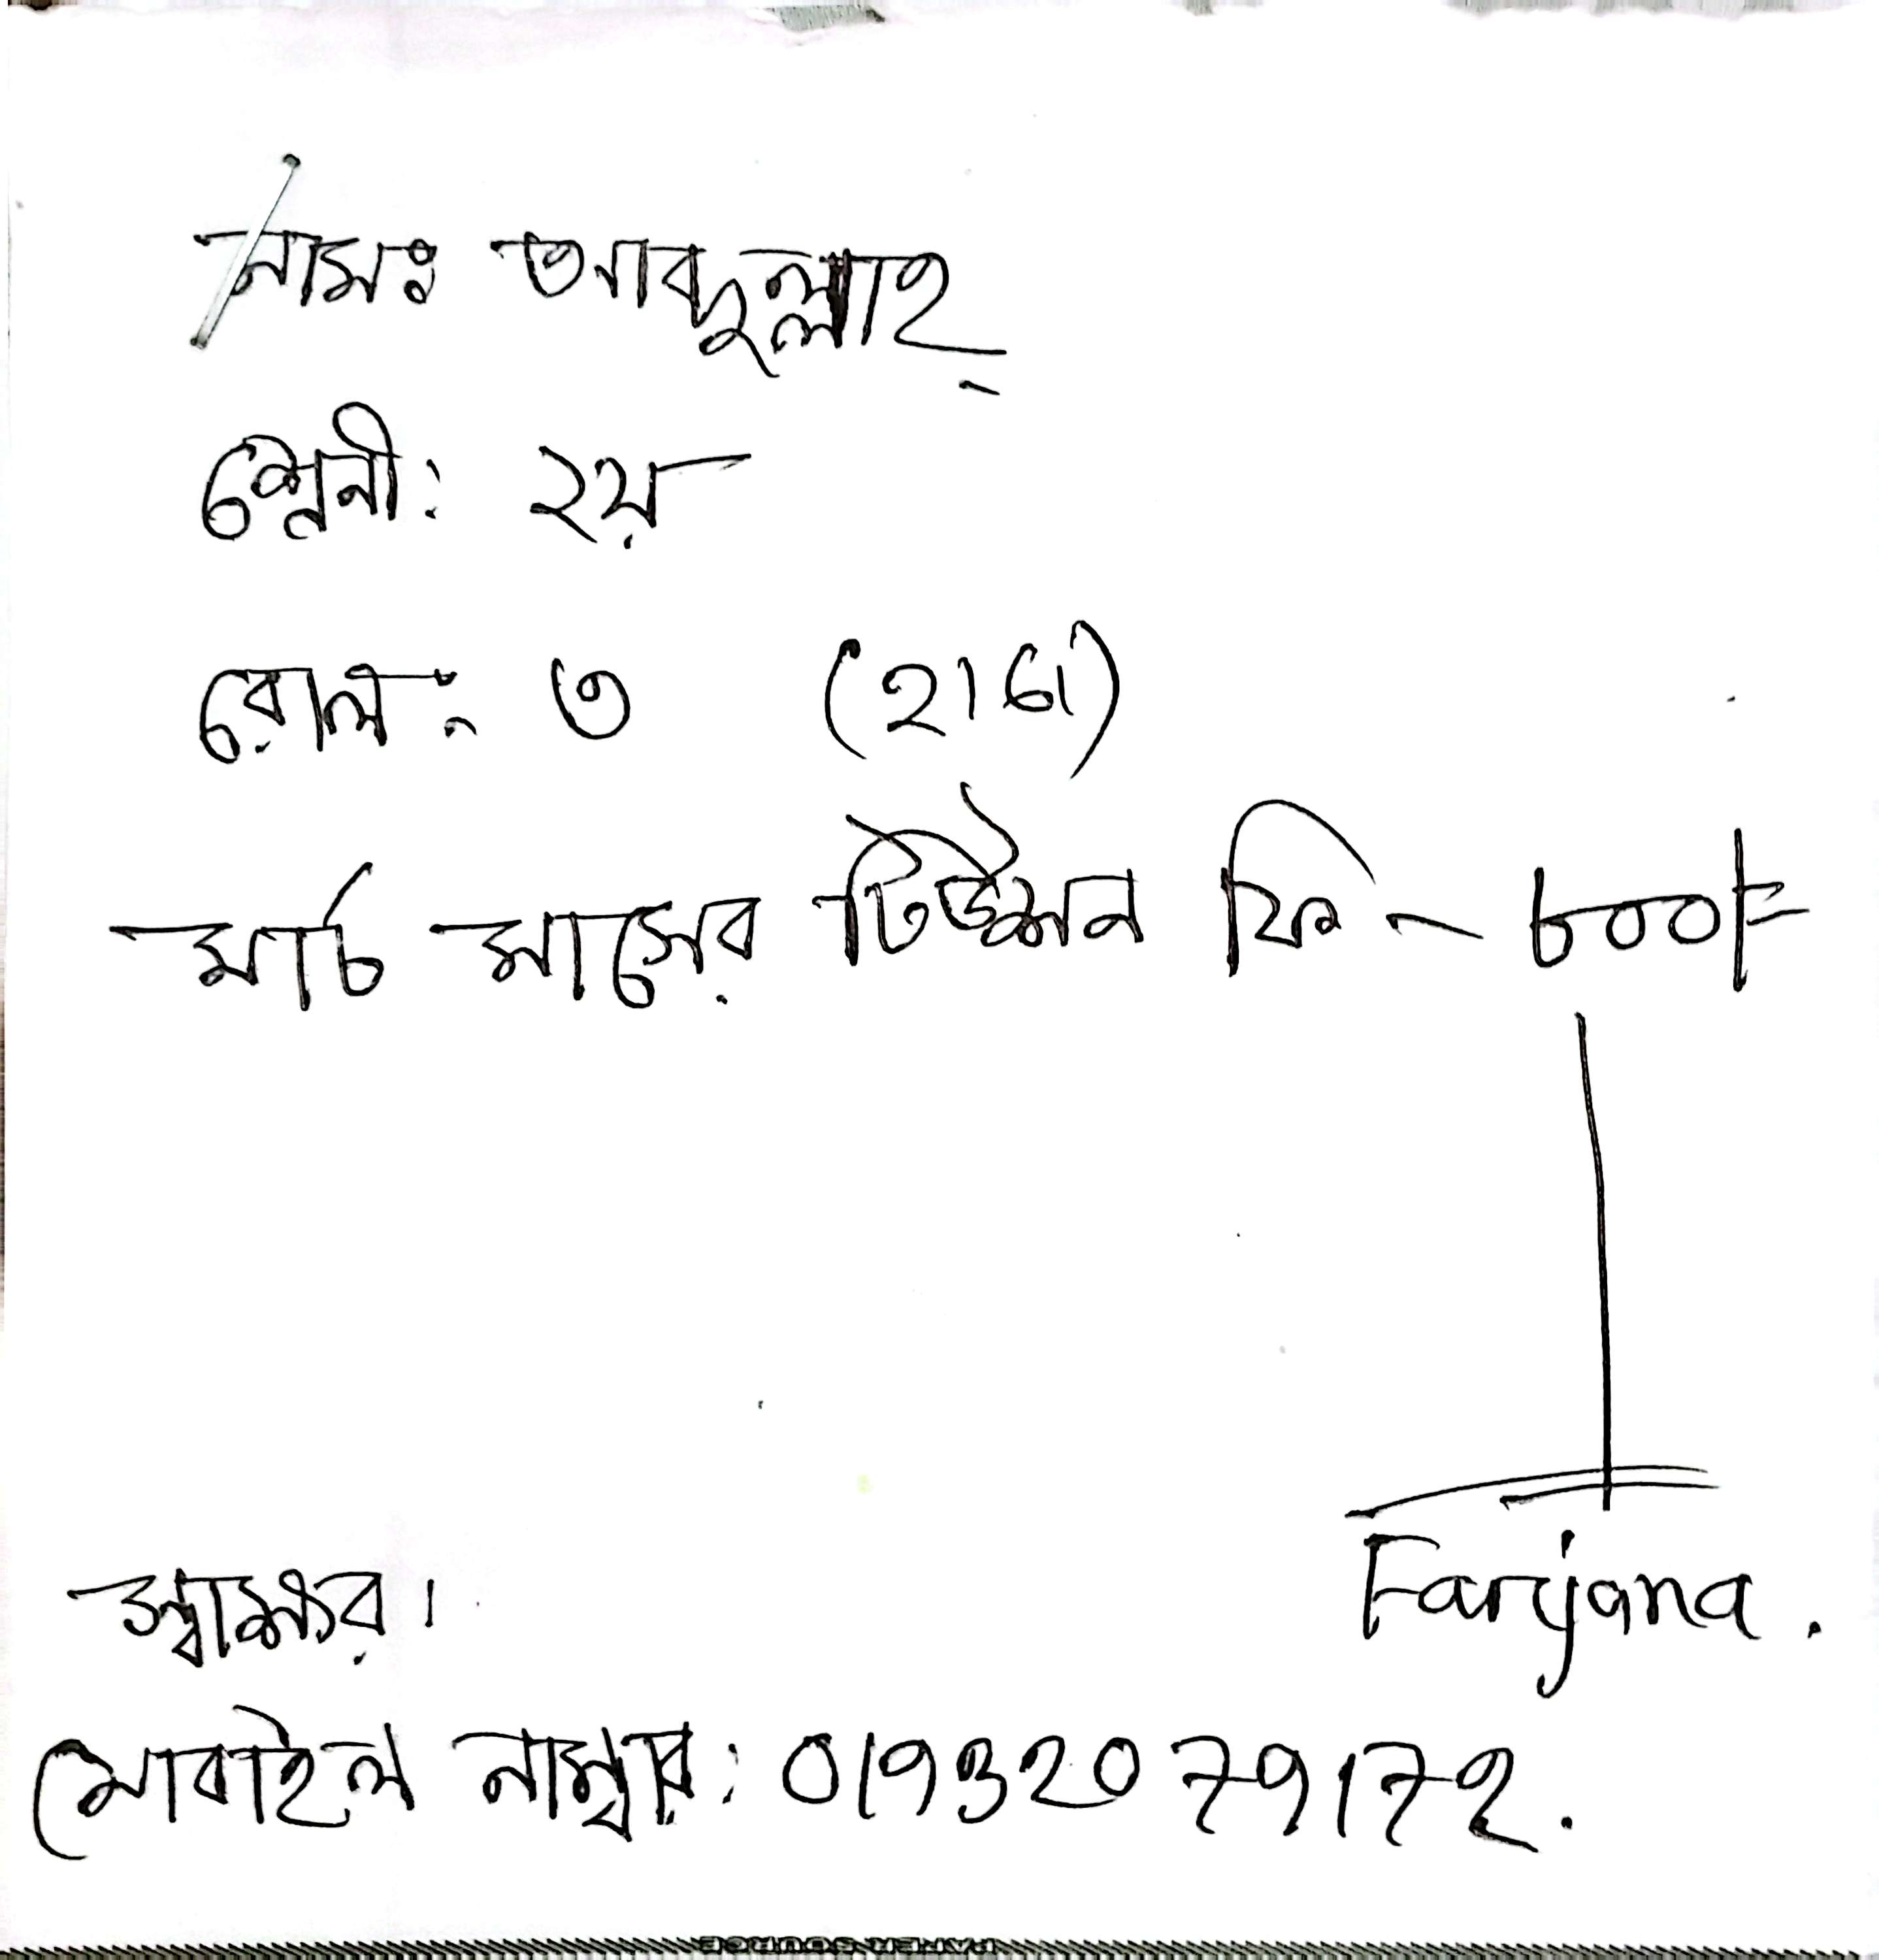 নামঃ আবদুল্লাহ্
শ্রেনী: ২য়
রোল: ৩ (হাজী)
মার্চ মাসের টিউশন ফি - ৮০০/=
স্বাক্ষর। Farjana.
মোবাইল নাম্বার: 01932079172.
PAPER SOURCE